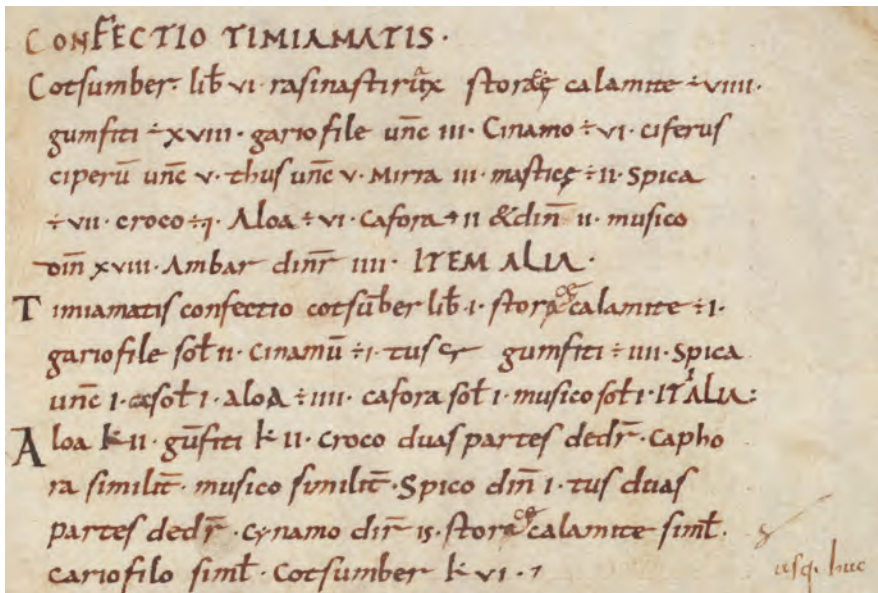 CONFECTIO TIMIAMATIS·
Cotsumber· lib̄ vi· rasinastirūx storacę calamite ÷ viiii·
gumfiti ÷ xviii· gariofile unc̄ iii· Cinamo ÷ vi· ciferus
ciperū unc̄ v· thus unc̄ v· Mirra iii· masticę ÷ ii· Spica
÷ vii· croco ÷ i· Aloa ÷ vi· Cafora ÷ ii &din̄ ii· musico
din̄ xviii· Ambar dinr̄ iiii· ITEM ALIA·
Timiamatis confectio cotsūber lib̄ i· storace calamite ÷ i·
gariofile sol̄ ii· Cinamū ÷ i· tus gumfiti ÷ iiii· Spica
unc̄ i· &sol̄ i· aloa ÷ iiii· cafora sol̄ i· musico sol̄ i· IT ALIA:
Aloa k ii· gūfiti k ii· Croco duas partes dedr̄· Capho
ra similit̄· musico similit̄· Spico din̄ i· tus duas
partes dedr̄· Cynamo dir̄ is· storace calamite siml̄·
cariofilo siml̄· Cotsumber k vi·
usq. huc